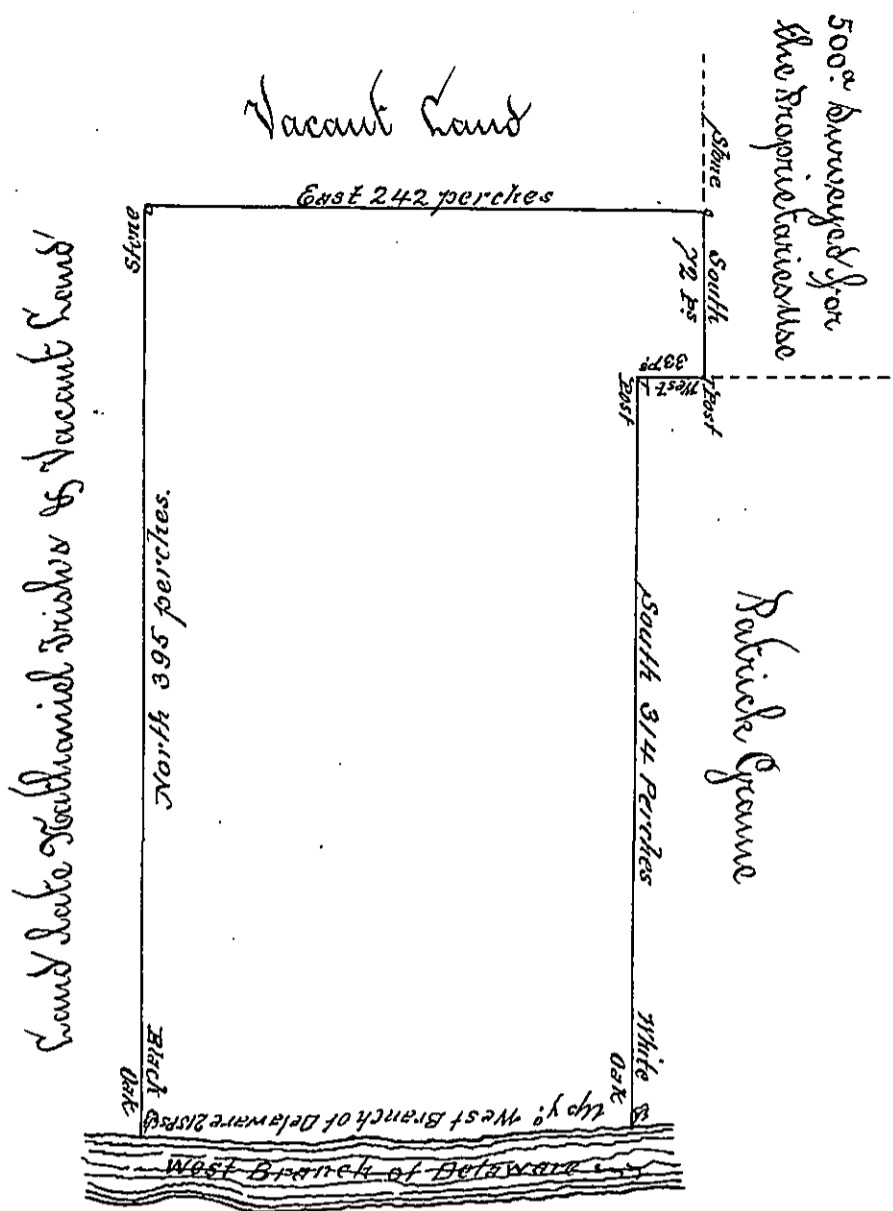 500.ᵃ Surveyed for
the Proprietaries Use
Vacant Land
Stone
East 242 perches
Stone
South
72 ps
33 ps
West
Post
Post
Land late Nathaniel Irishs & Vacant Land
North 395 perches.
South 314 Perches
Patrick Græme
Black
Oak
White
Oak
Up yᵉ West Branch of Delaware 215 Ps
West Branch of Delaware